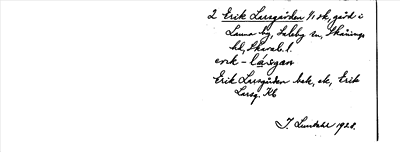 2 Erik Larsgården 1/1 sk, gård i
Launa by, Saleby sn, Skånings
hd, Skarab. l.
erik - lásgan
Erik Larsgården bek, ek, Erik
Larsg. Kb
J. Lundahl 1928.